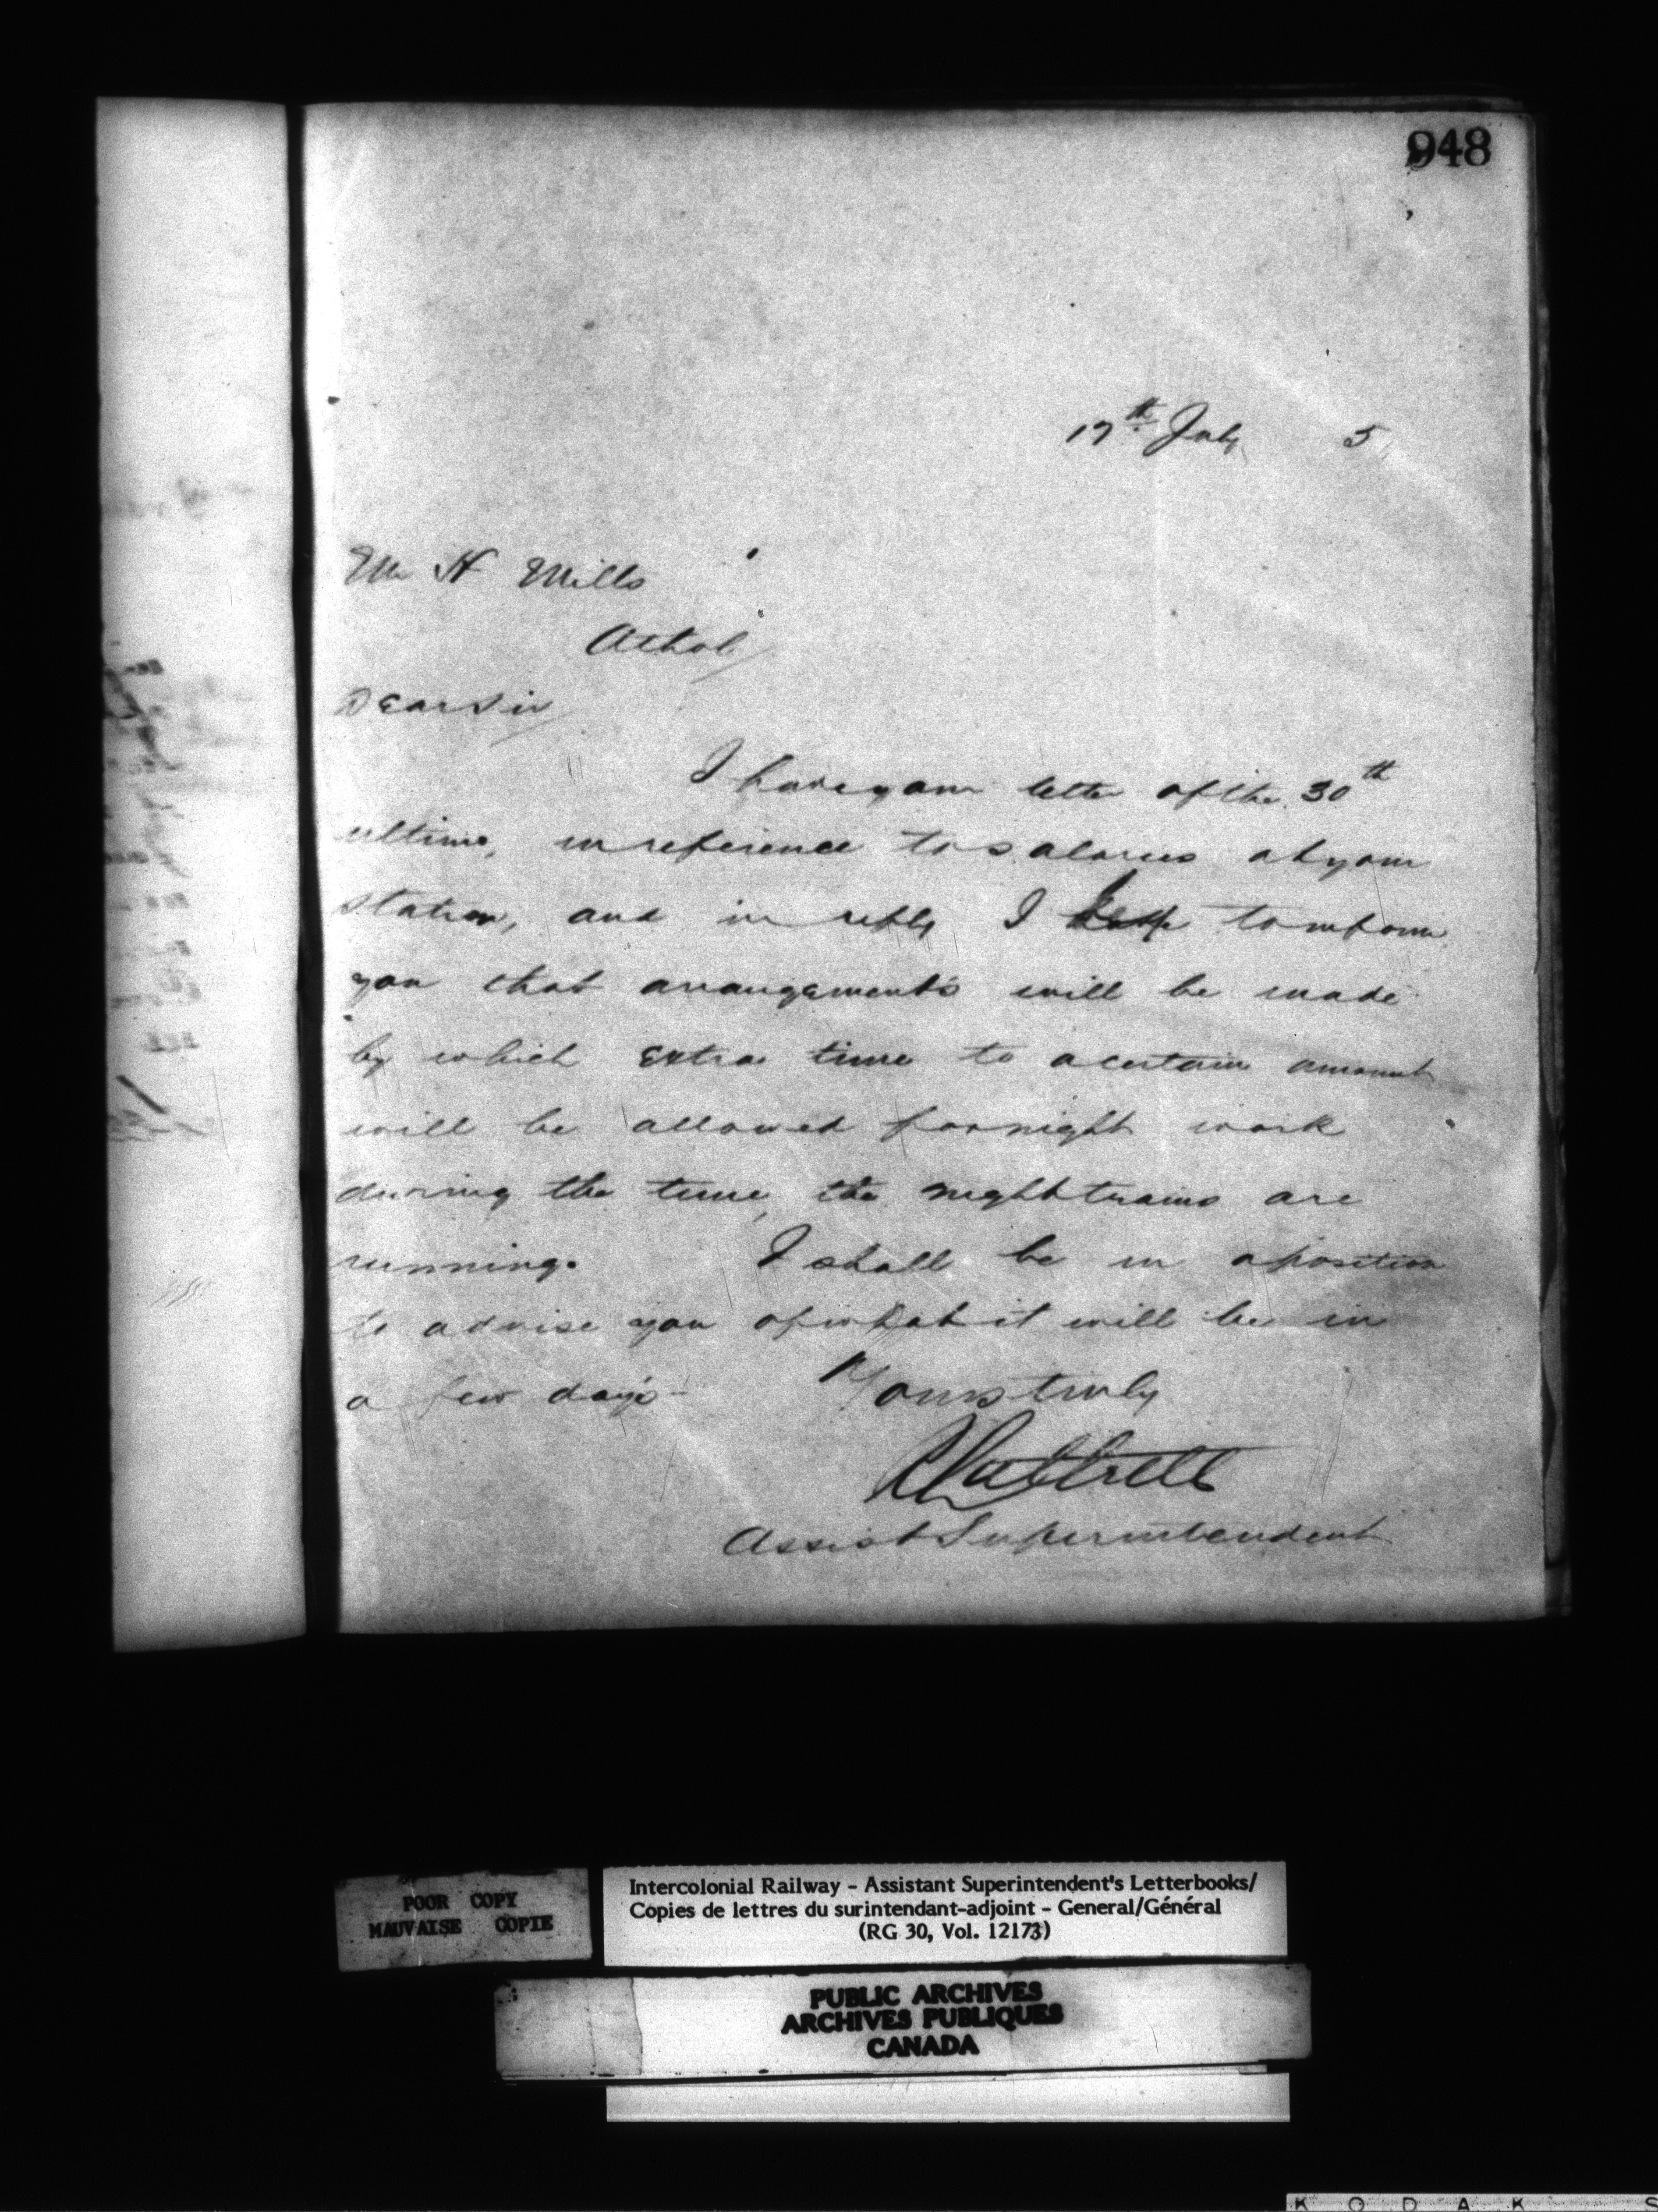 948
17th July 5
Mr H Mills
Athol
Dear Sir
I have your letter of the 30th
ultimo, in reference to salaries at your
station, and in reply I to inform
you that arrangements will be made
by which extra time to a certain amount
will be allowed for night work
during the time the night trains are
running. I shall be in a position
to advise you of what it will be in
a few days - Yours truly
Assist Superintendent
POOR COPY
MAUVAISE COPIE
Intercolonial Railway - Assistant Superintendent's Letterbooks/
Copies de lettres du surintendant-adjoint - General/Général
(RG 30, Vol. 12173)
PUBLIC ARCHIVES
ARCHIVES PUBLIQUES
CANADA
K O D A K S